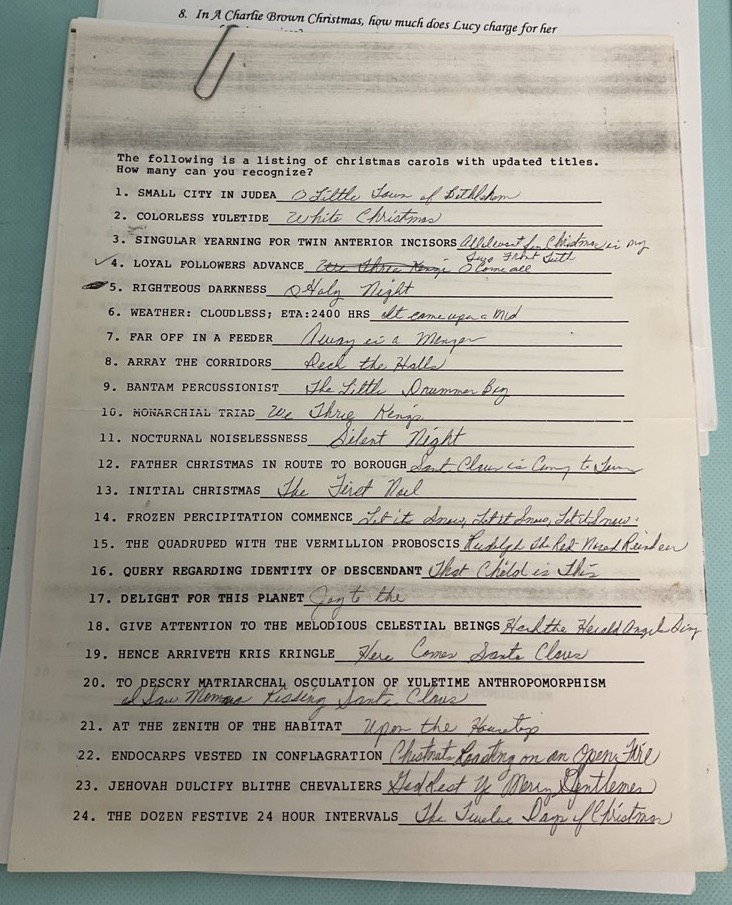 8. In A Charlie Brown Christmas, how much does Lucy charge for her
The following is a listing of christmas carols with updated titles.
How many can you recognize?
1. SMALL CITY IN JUDEA O Little Town of Bethlehem
2. COLORLESS YULETIDE White Christmas
3. SINGULAR YEARNING FOR TWIN ANTERIOR INCISORS All I want for Christmas is my
Two Front Teeth
4. LOYAL FOLLOWERS ADVANCE We Three Kings O Come all
5. RIGHTEOUS DARKNESS O Holy Night
6. WEATHER: CLOUDLESS; ETA:2400 HRS It came upon a Mid
7. FAR OFF IN A FEEDER Away in a Manger
8. ARRAY THE CORRIDORS Deck the Halls
9. BANTAM PERCUSSIONIST The Little Drummer Boy
10. MONARCHIAL TRIAD We Three Kings
11. NOCTURNAL NOISELESSNESS Silent Night
12. FATHER CHRISTMAS IN ROUTE TO BOROUGH Santa Claus is Coming to Town
13. INITIAL CHRISTMAS The First Noel
14. FROZEN PERCIPITATION COMMENCE Let it Snow, Let it Snow, Let it Snow
15. THE QUADRUPED WITH THE VERMILLION PROBOSCIS Rudolph the Red Nosed Reindeer
16. QUERY REGARDING IDENTITY OF DESCENDANT What Child is This
17. DELIGHT FOR THIS PLANET Joy to the
18. GIVE ATTENTION TO THE MELODIOUS CELESTIAL BEINGS Hark the Herald Angels Sing
19. HENCE ARRIVETH KRIS KRINGLE Here Comes Santa Claus
20. TO DESCRY MATRIARCHAL OSCULATION OF YULETIME ANTHROPOMORPHISM
I Saw Momma Kissing Santa Claus
21. AT THE ZENITH OF THE HABITAT Upon the Housetop
22. ENDOCARPS VESTED IN CONFLAGRATION Chestnuts Roasting on an Open Fire
23. JEHOVAH DULCIFY BLITHE CHEVALIERS God Rest Ye Merry Gentlemen
24. THE DOZEN FESTIVE 24 HOUR INTERVALS The Twelve Days of Christmas